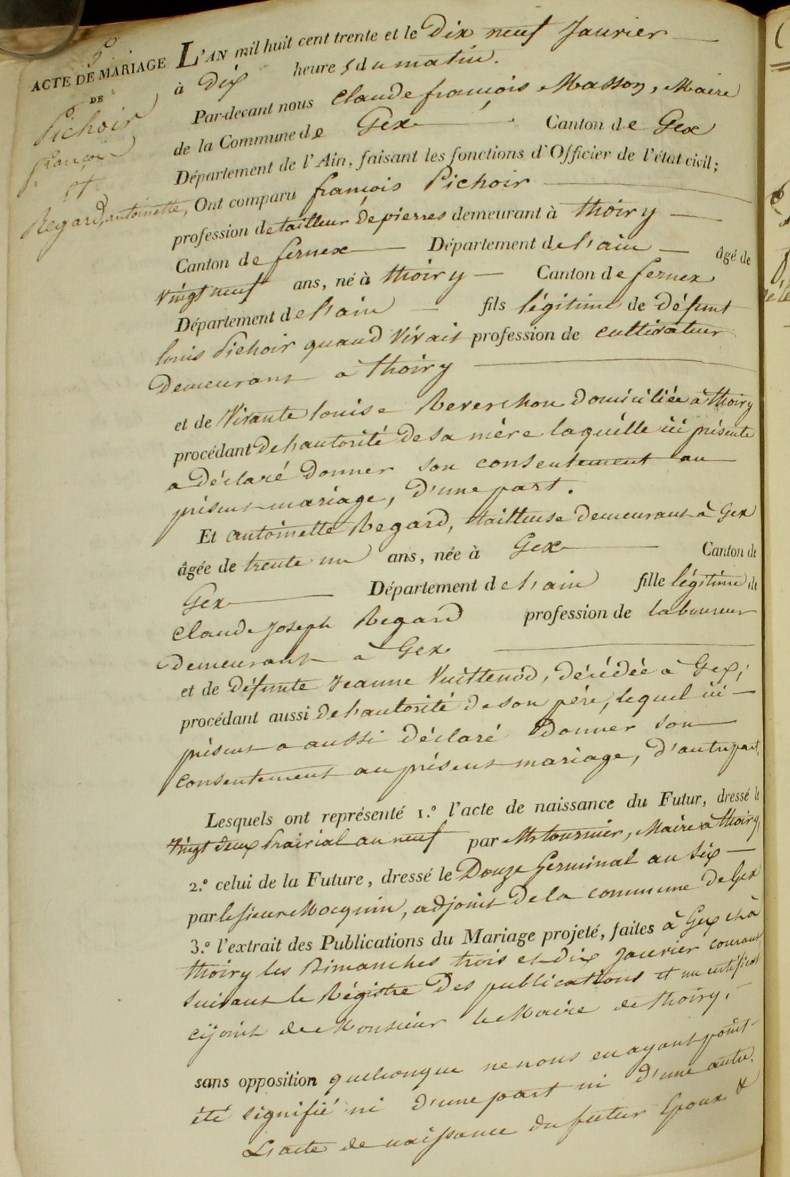 5°
ACTE DE MARIAGE
DE
Pichoir
françois
et
Regard, antoinette,
L'AN mil huit cent trente et le Dix neuf Janvier
à Dix heures du matin.
Par-devant nous Claude françois Masson, Maire
de la Commune de Gex Canton de Gex
Département de l'Ain, faisant les fonctions d'Officier de l'état civil;
Ont comparu françois Pichoir
profession de tailleur de pierres demeurant à Thoiry
Canton de fernex Département de l'ain âgé de
Vingt neuf ans, né à Thoiry Canton de fernex
Département de l'ain fils légitime de défunt
louis Pichoir quand Vivait profession de cultivateur
Demeurant à Thoiry
et de Vivante louise Reverchon Domiciliée à Thoiry
procédant de l'autorité de sa mère laquelle ici présente
a Déclaré Donner son consentement au
présent mariage, d'une part.
Et antoinette Regard, tailleuse demeurant à Gex
âgée de trente un ans, née à Gex Canton de
Gex Département de l'ain fille légitime de
Claude Joseph Regard profession de laboureur
Demeurant à Gex
et de défunte Jeanne Vuittenod, décédée à Gex;
procédant aussi de l'autorité de son père, lequel ici
présent a aussi déclaré Donner son
consentement au présent mariage, d'autre part.
Lesquels ont représenté 1.° l'acte de naissance du Futur, dressé le
Vingt deux Prairial an neuf par Mr tournier, Maire à Thoiry,
2.° celui de la Future, dressé le Douze Germinal an Six
par le sieur Mocquin, adjoint de la commune de Gex
3.° l'extrait des Publications du Mariage projeté, faites à Gex et à
Thoiry les Dimanches trois et dix Janvier courant
suivant le Régistre Des publications et un certificat
cijoint de Monsieur le Maire de Thoiry,
sans opposition quelconque ne nous en ayant point
été signifié ni d'une part ni d'une autre.
L'acte de naissance du futur Epoux &